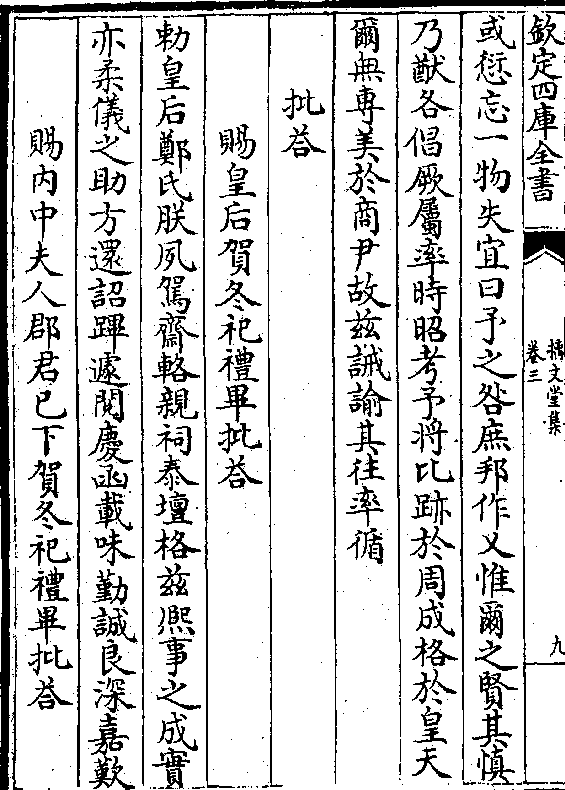 欽定四庫全書
摛文堂集
卷三
九
或愆忘一物失宜曰予之咎庶邦作乂惟爾之賢其慎
乃猷各倡厥屬率時昭考予將比跡於周成格於皇天
爾無専美於商尹故兹誡諭其往率循
批荅
賜皇后賀冬祀禮畢批荅
勅皇后鄭氏朕夙駕齋輅親祠泰壇格兹熈事之成實
亦柔儀之助方還詔蹕遽閲慶函載味勤誠良深嘉歎
賜内中夫人郡君已下賀冬祀禮畢批荅